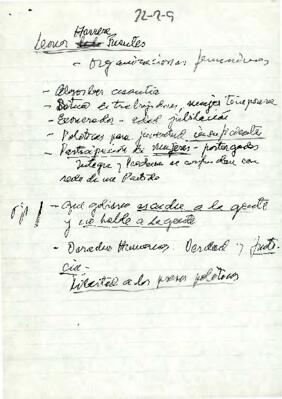 22-2-9
Leonor Herrera Fuentes
- organizaciones femeninas
- Absorber cesantía
- trabajadores, mujer temporera
- Exonerados - edad jubilación
- Políticas para juventud insuficientes
- Participación de mujeres - postergados
Integra y Prodemu se confunden con
sede de un Partido
ojo - Que gobierno escuche a la gente
y no hable a la gente
- Derechos Humanos. Verdad y Justi
cia -
Libertad a los presos políticos